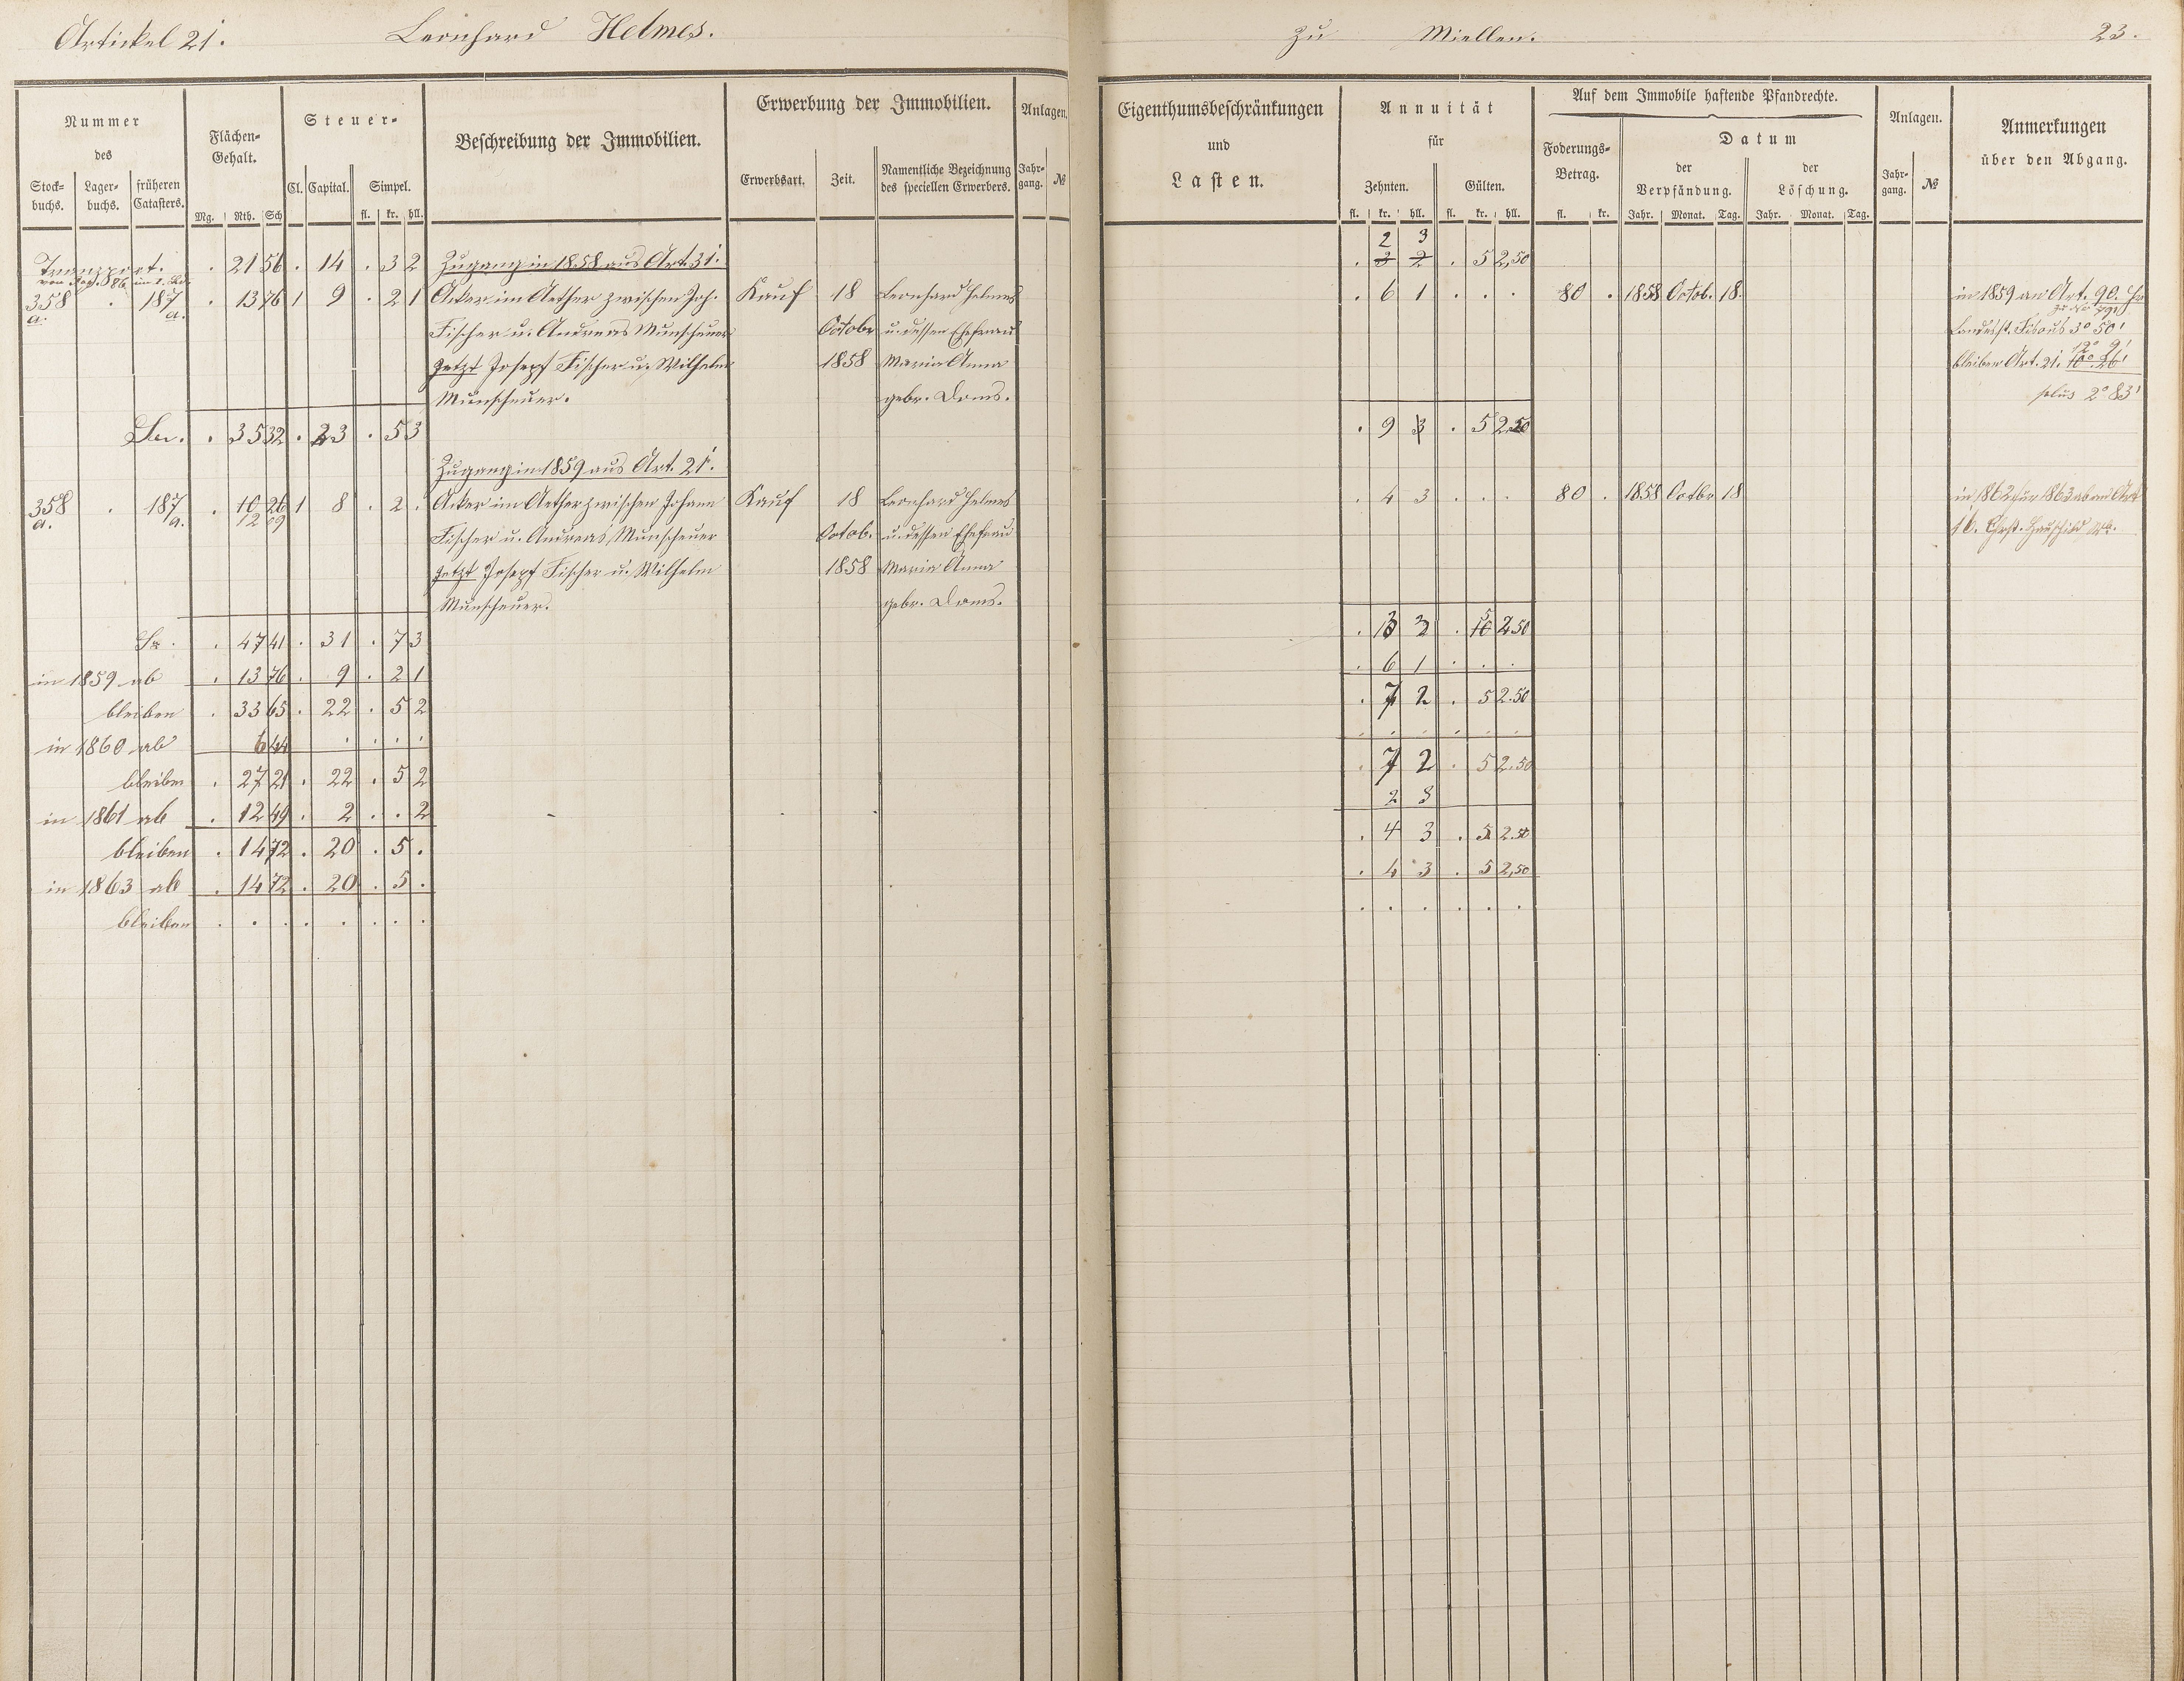 Artickel 21. Leonhard Helmes. zu Miellen. 23.
Nummer des
Stock- buchs. Lager- buchs. früheren Catasters.
Flächen- Gehalt.
Mg. Rth. Sch
Steuer-
Cl. Capital. Simpel.
fl. kr. hll.
Beschreibung der Immobilien.
Erwerbung der Immobilien.
Erwerbsart. Zeit. Namentliche Bezeichnung des speciellen Erwerbers.
Anlagen.
Jahr- gang. №
Transport. . 21 56 . 14 . 3 2 Zugang in 1858 aus Art. 31.
von Pag. 886 im 1. Bd.
358 a. . 187 a. . 13 76 1 9 . 2 1 Acker im Aether zwischen Joh. Kauf 18 Leonhard Helmes
Fischer u. Andreas Munscheuer Octobr u. dessen Ehefrau
jetzt Josepf Fischer u. Wilhelm 1858 Maria Anna
Munscheuer. gebr. Doms.
Sa. . 35 32 . 23 . 5 3
Zugang in 1859 aus Art. 21.
358 a. . 187 a. . 10 26 1 8 . 2 . Acker im Aether zwischen Johann Kauf 18 Leonhard Helmes
12 09
Fischer u. Andreas Munscheuer Octob. u. dessen Ehefrau
jetzt Josepf Fischer u. Wilhelm 1858 Maria Anna
Munscheuer. gebr. Doms.
Sa. . 47 41 . 31 . 7 3
in 1859 ab . 13 76 . 9 . 2 1
bleiben . 33 65 . 22 . 5 2
in 1860 ab 6 44 . . . .
bleiben . 27 21 . 22 . 5 2
in 1861 ab . 12 49 . 2 . . 2
bleiben . 14 72 . 20 . 5 .
in 1863 ab . 14 72 . 20 . 5 .
bleiben . . . . . . . .
Eigenthumsbeschränkungen
und
Lasten.
Annuität
für
Zehnten. Gülten.
fl. kr. hll. fl. kr. hll.
Auf dem Immobile haftende Pfandrechte.
Foderungs- Betrag.
fl. kr.
Datum
der Verpfändung. der Löschung.
Jahr. Monat. Tag. Jahr. Monat. Tag.
Anlagen.
Jahr- gang. №
Anmerkungen
über den Abgang.
2 3
. 3 2 . 5 2,50
. 6 1 . . . 80 . 1858 Octob. 18. in 1859 an Art. 90.
Landesh. Fiscus 3° 50'
12° 9'
bleiben Art. 21. 10° 26'
plus 2° 83'
. 9 3 . 5 2.50
. 4 3 . . . 80 . 1858 Octbr 18 in 1862 für 1863 ab an Art
16.
. 13 3 . 5 2.50
. 6 1 . . .
. 7 2 . 5 2.50
. . . . . .
. 7 2 . 5 2.50
2 3
. 4 3 . 5 2.50
. 4 3 . 5 2,50
. . . . . .